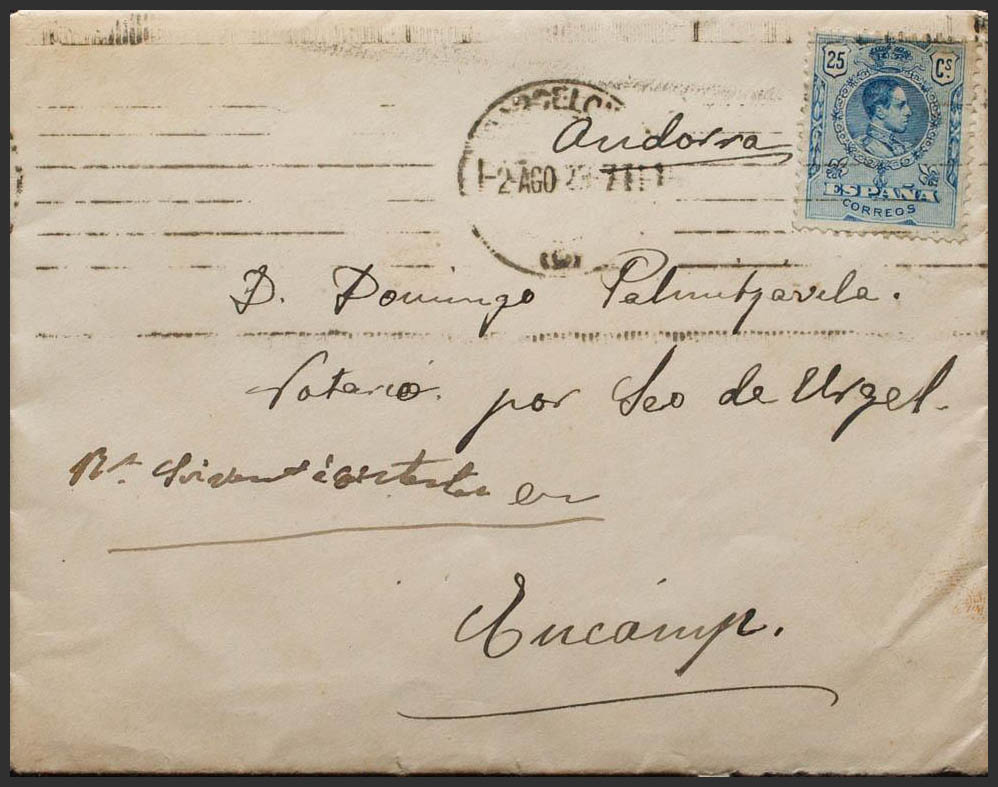 25 Cs.
ESPAÑA
CORREOS
2-AGO
Andorra
D. Domingo Palmitjavila.
Notario. por Seo de Urgel.
en
Encamp.